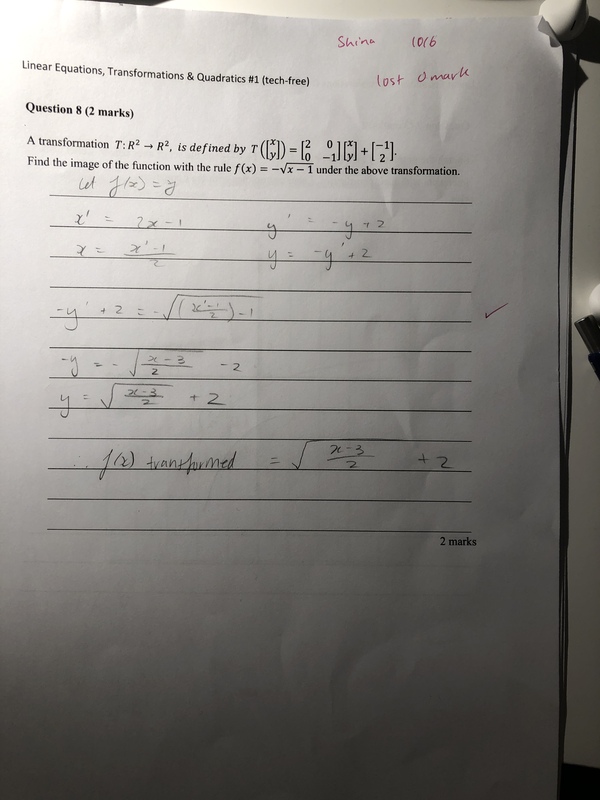 Shina 10/6
lost 0 mark
Linear Equations, Transformations & Quadratics #1 (tech-free)
Question 8 (2 marks)
A transformation T: R² → R², is defined by T([x y]) = [2 0 0 −1][x y] + [−1 2].
Find the image of the function with the rule f(x) = −√x − 1 under the above transformation.
let f(x) = y
x' = 2x - 1 y' = -y + 2
x = x'-1/2 y = -y' + 2
-y' + 2 = -√(x'-1/2) - 1 ✓
-y = -√x-3/2 - 2
y = √x-3/2 + 2
∴ f(x) transformed = √x-3/2 + 2
2 marks